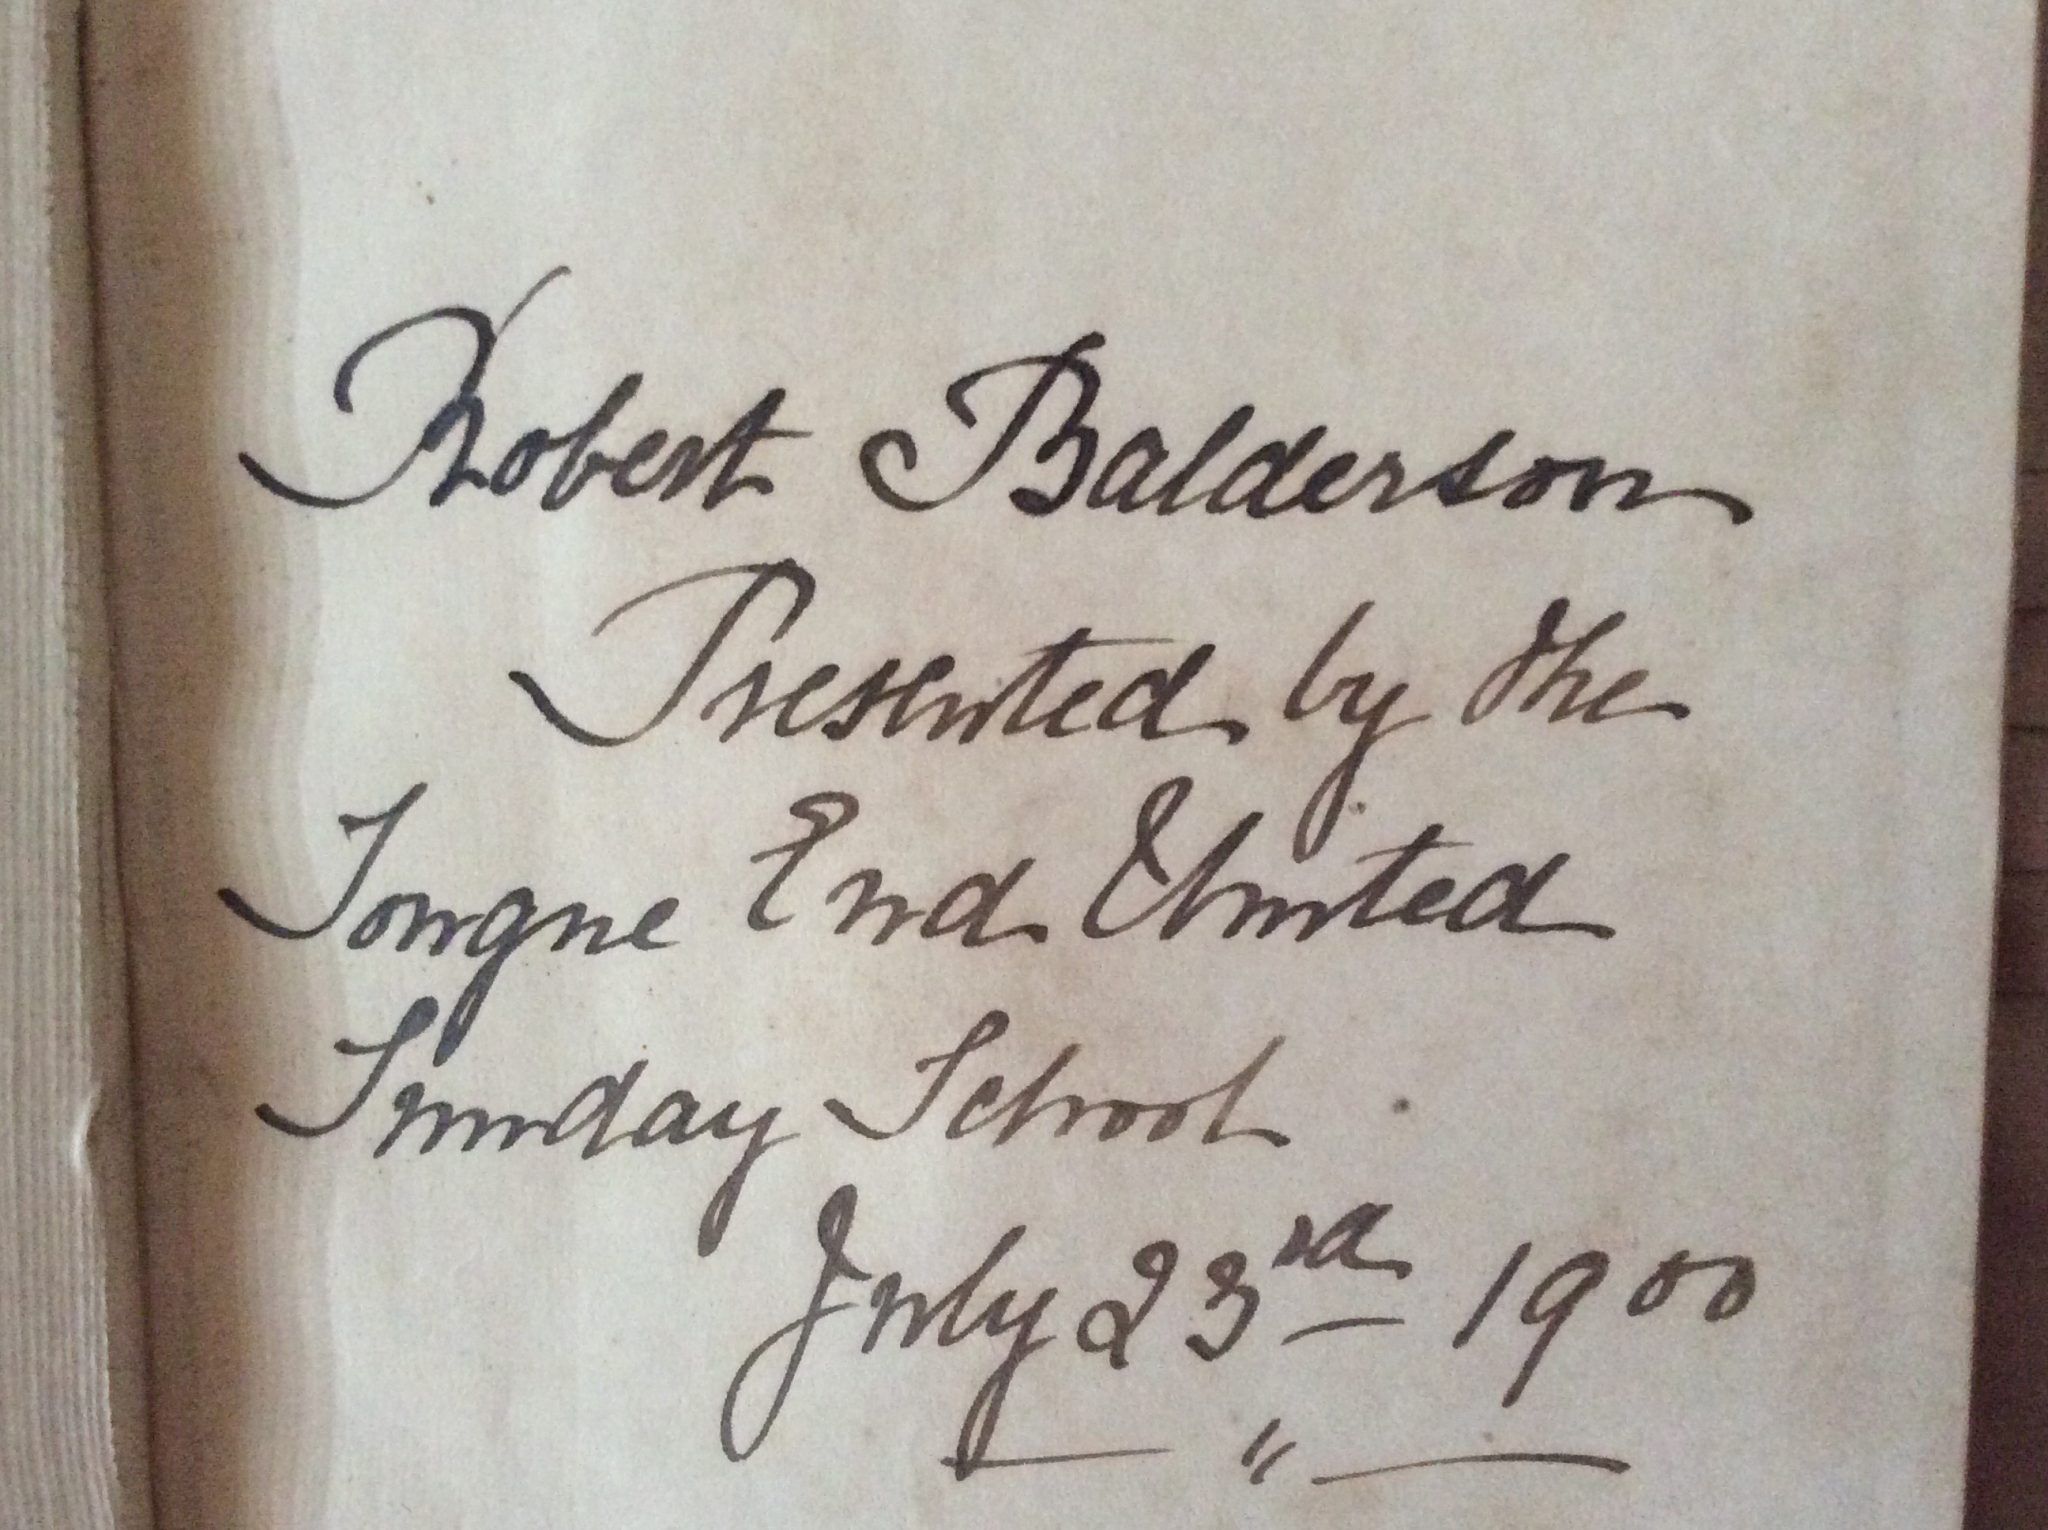 Robert Balderson
Presented by the
Tongue End United
Sunday School
July 23rd 1900
— " —